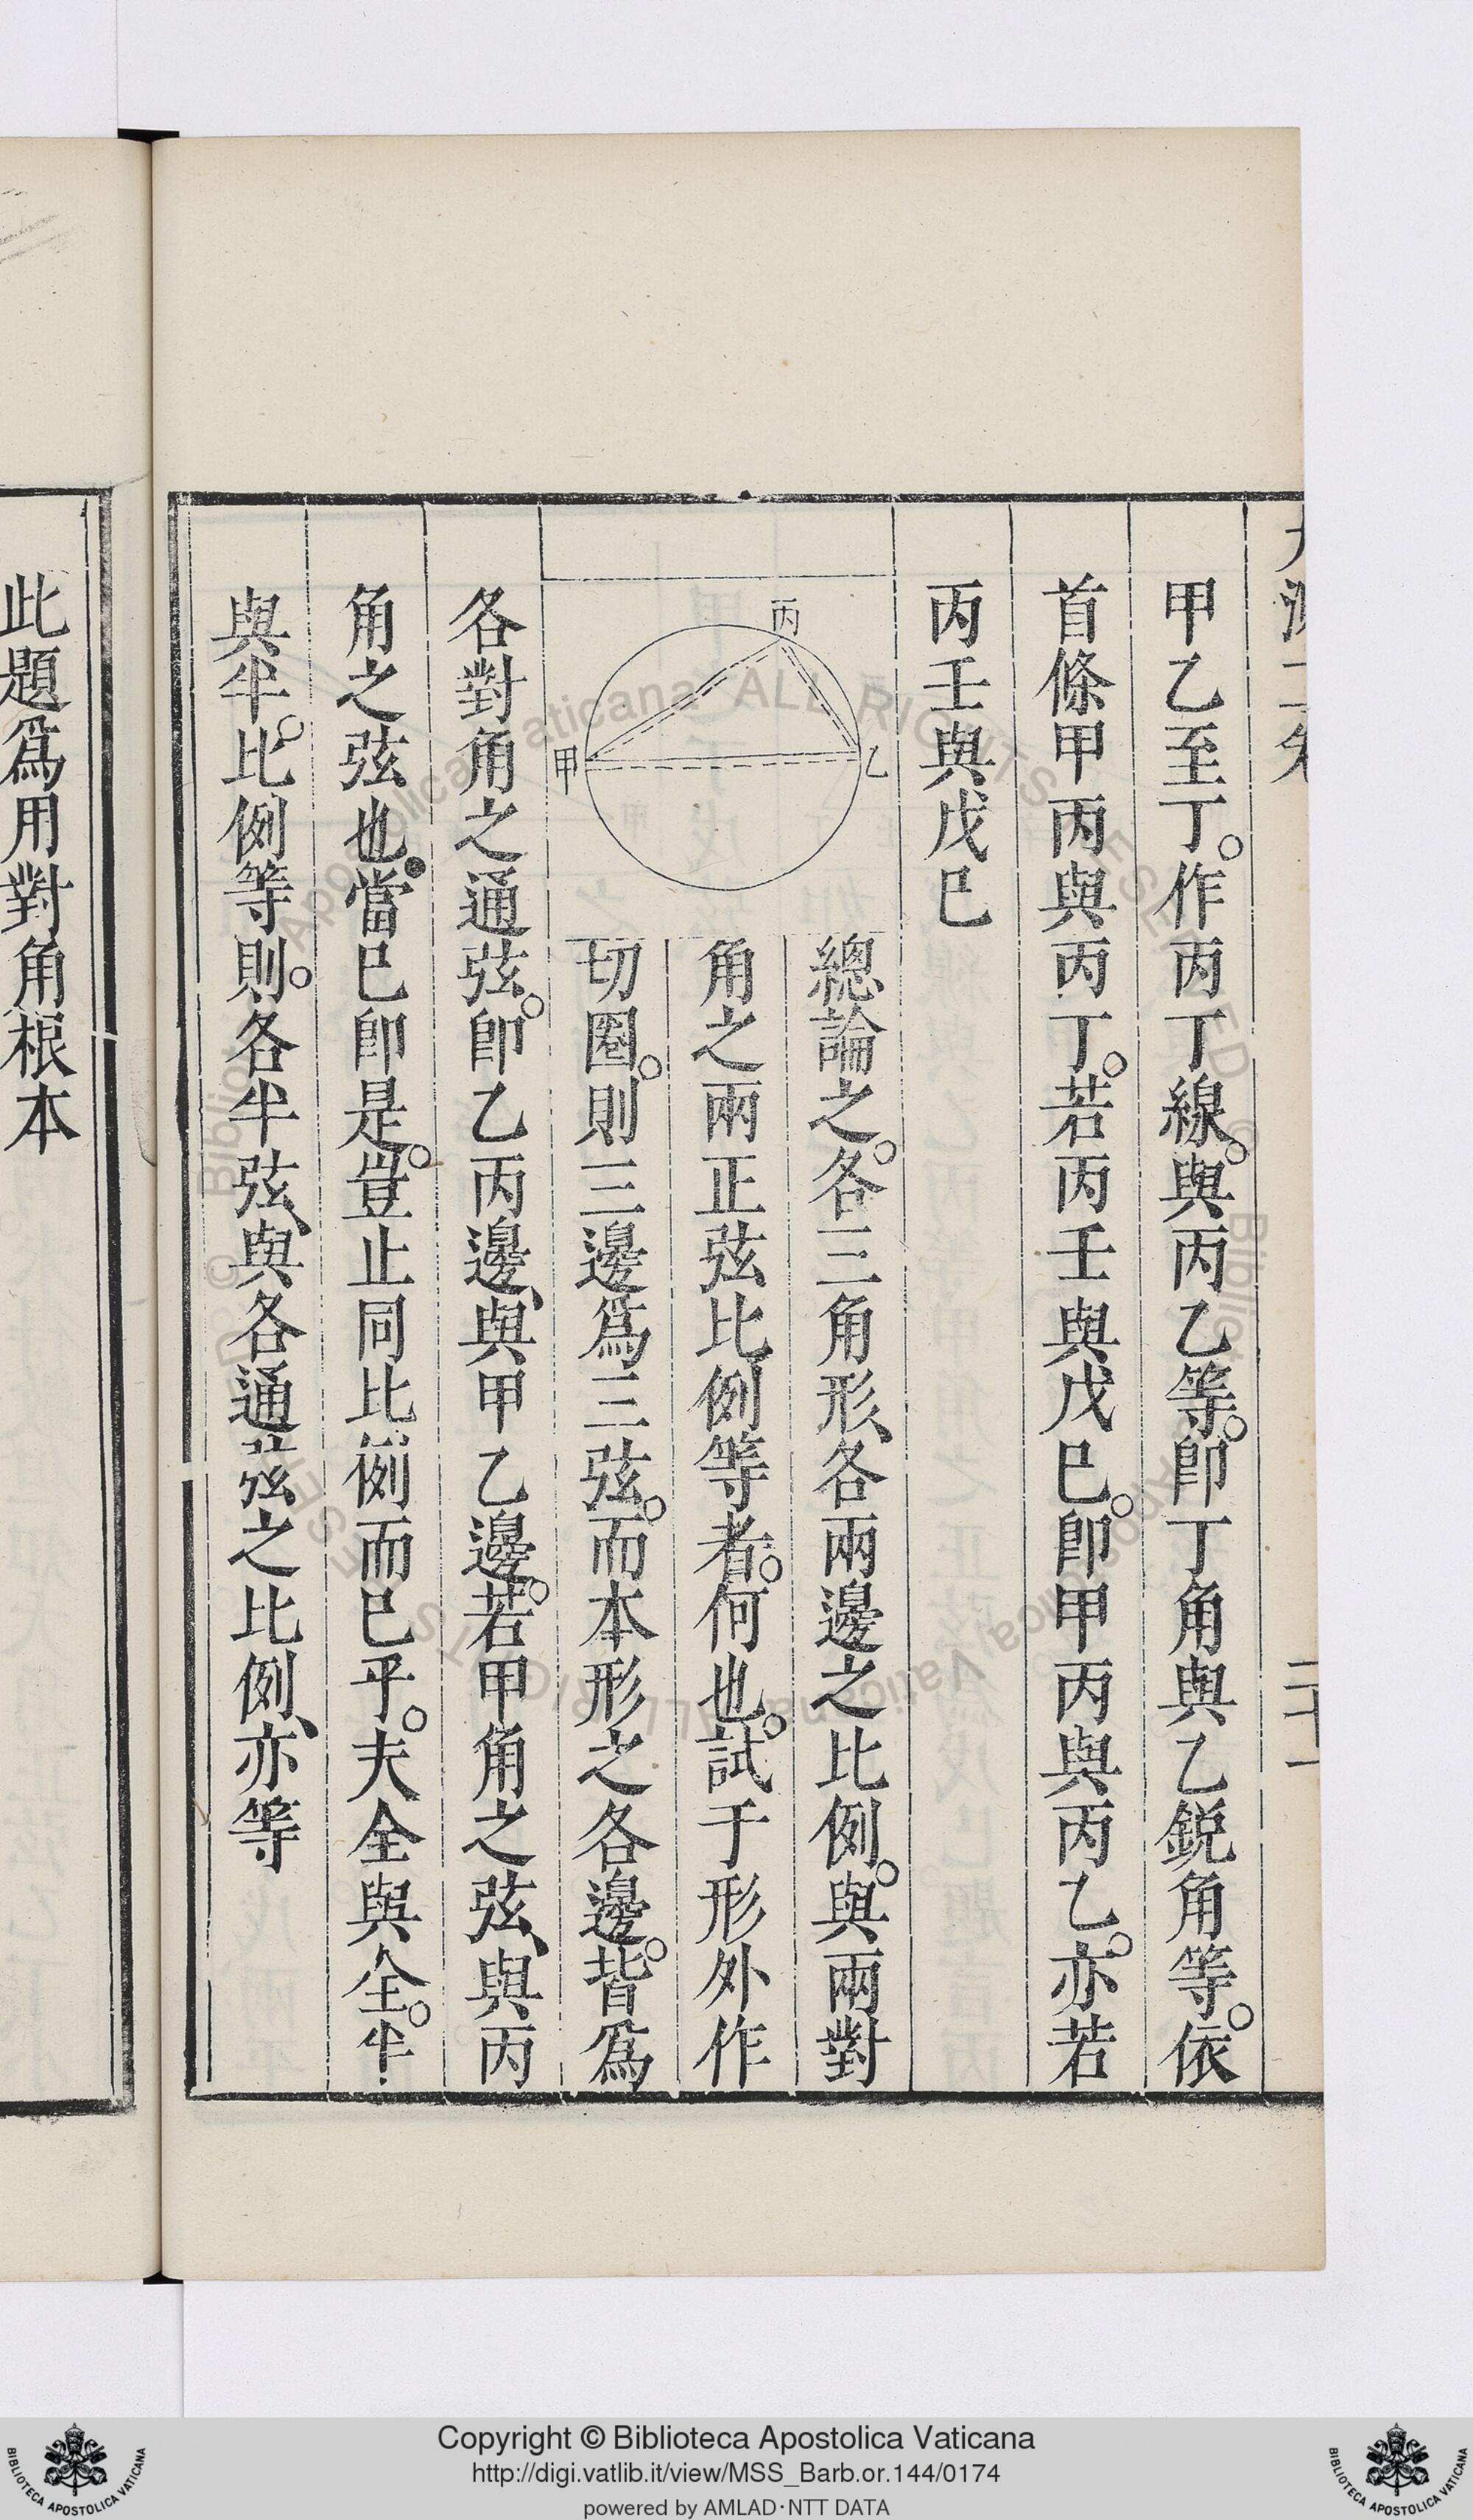 甲乙至丁。作丙丁線。與丙乙等。卽丁角與乙銳角等。依
首條甲丙與丙丁。若丙壬與戊巳。卽甲丙與丙乙。亦若
丙壬與戊巳
丙
甲
乙
總論之。各三角形、各兩邊之比例。與兩對
角之兩正弦比例等者。何也。試于形外作
切圈。則三邊爲三弦。而本形之各邊。皆爲
各對角之通弦。卽乙丙邊、與甲乙邊。若甲角之弦、與丙
角之弦也。當巳卽是。豈止同比例而巳乎。夫全與全。半
與半。比例等則。各半弦、與各通弦之比例、亦等
二十一
此題爲用對角根本
Copyright © Biblioteca Apostolica Vaticana
http://digi.vatlib.it/view/MSS_Barb.or.144/0174
powered by AMLAD·NTT DATA
BIBLIOTECA APOSTOLICA VATICANA
BIBLIOTECA APOSTOLICA VATICANA